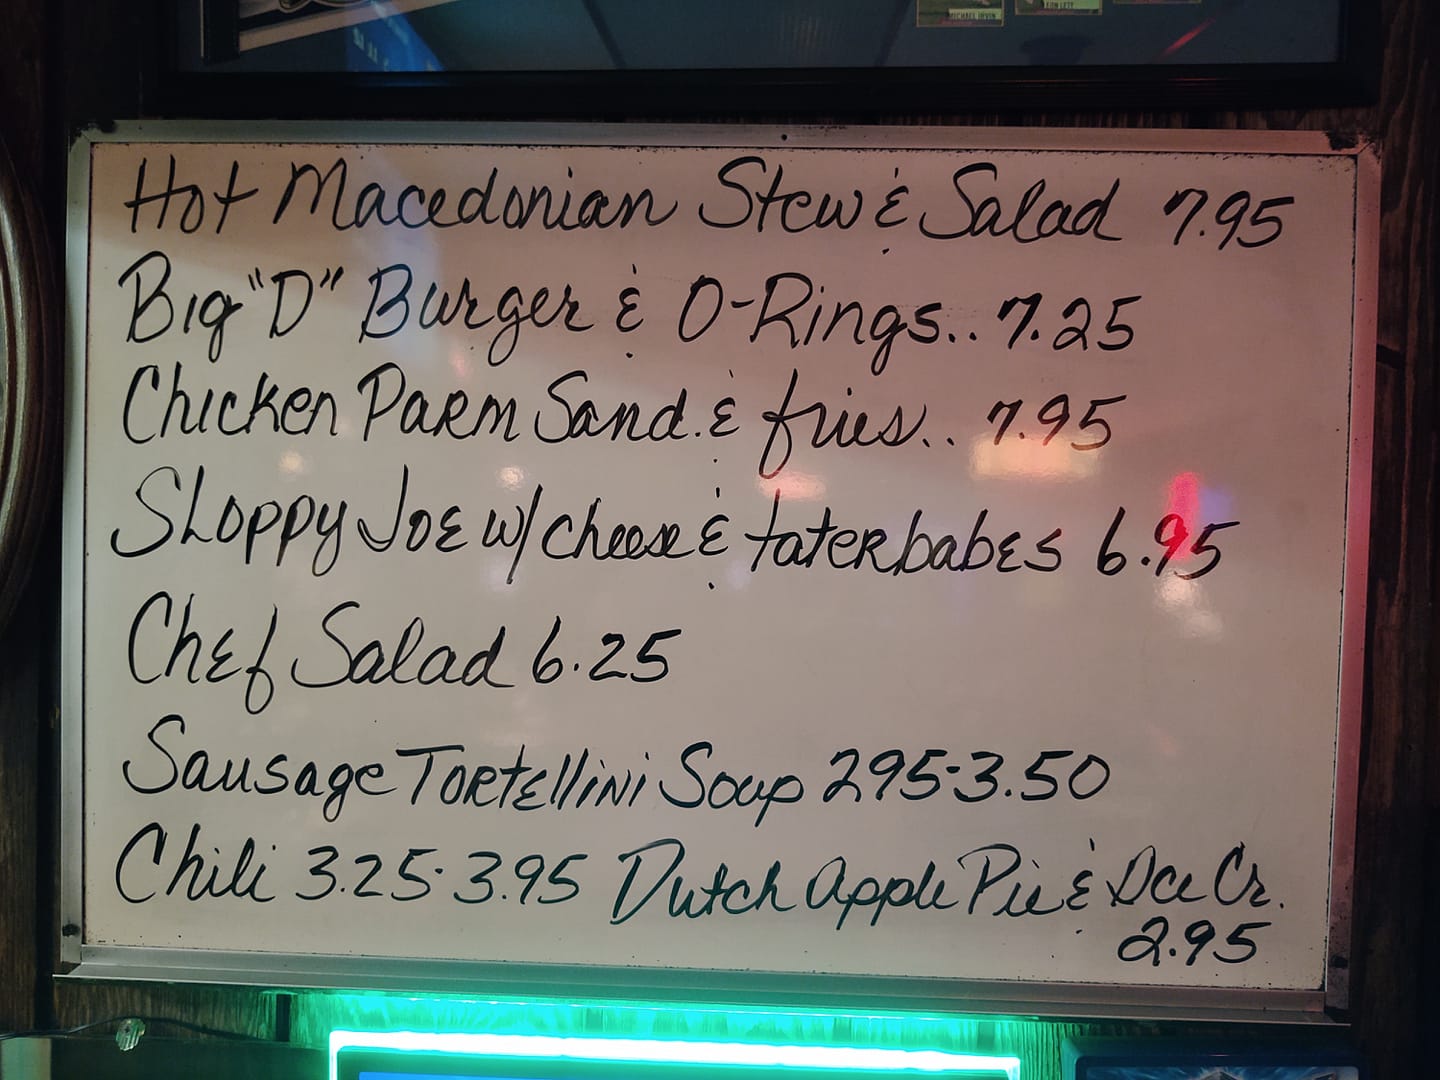 MICHAEL IRVIN
Hot Macedonian Stew & Salad 7.95
Big "D" Burger & O-Rings.. 7.25
Chicken Parm Sand. & fries.. 7.95
Sloppy Joe w/ cheese & taterbabes 6.95
Chef Salad 6.25
Sausage Tortellini Soup 295-3.50
Chili 3.25-3.95 Dutch Apple Pie & Ice Cr.
2.95